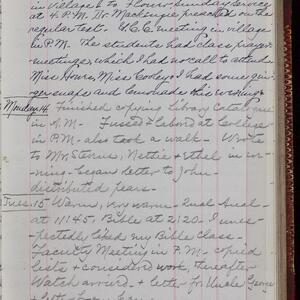 in village & to Flower Sunday Service
at 4. P.M. Dr. Mackenzie preached on the
regular text. Y.C.C. meeting in village
in P.M. The students had class prayer
meetings, which I had not call to attend
Miss Hows, Miss Cooley & I had some gin-
ger snaps and lemonade this evening
Monday 14. Finished copying Library Catalogue
in A.M. Fussed & labored at College
in P.M. also took a walk - Wrote
to Mrs Sterns, Nettie & Ethel in eve-
ning - began letter to John -
distributed
Tues. 15 Warm, very warm -
at 11:45. Bible at 2:20. I unex-
pectedly liked my Bible Class -
Faculty Meeting in P.M. - copied
lists & considered work, thereafter
Watch arrived & letter fr. Uncle George
& letter